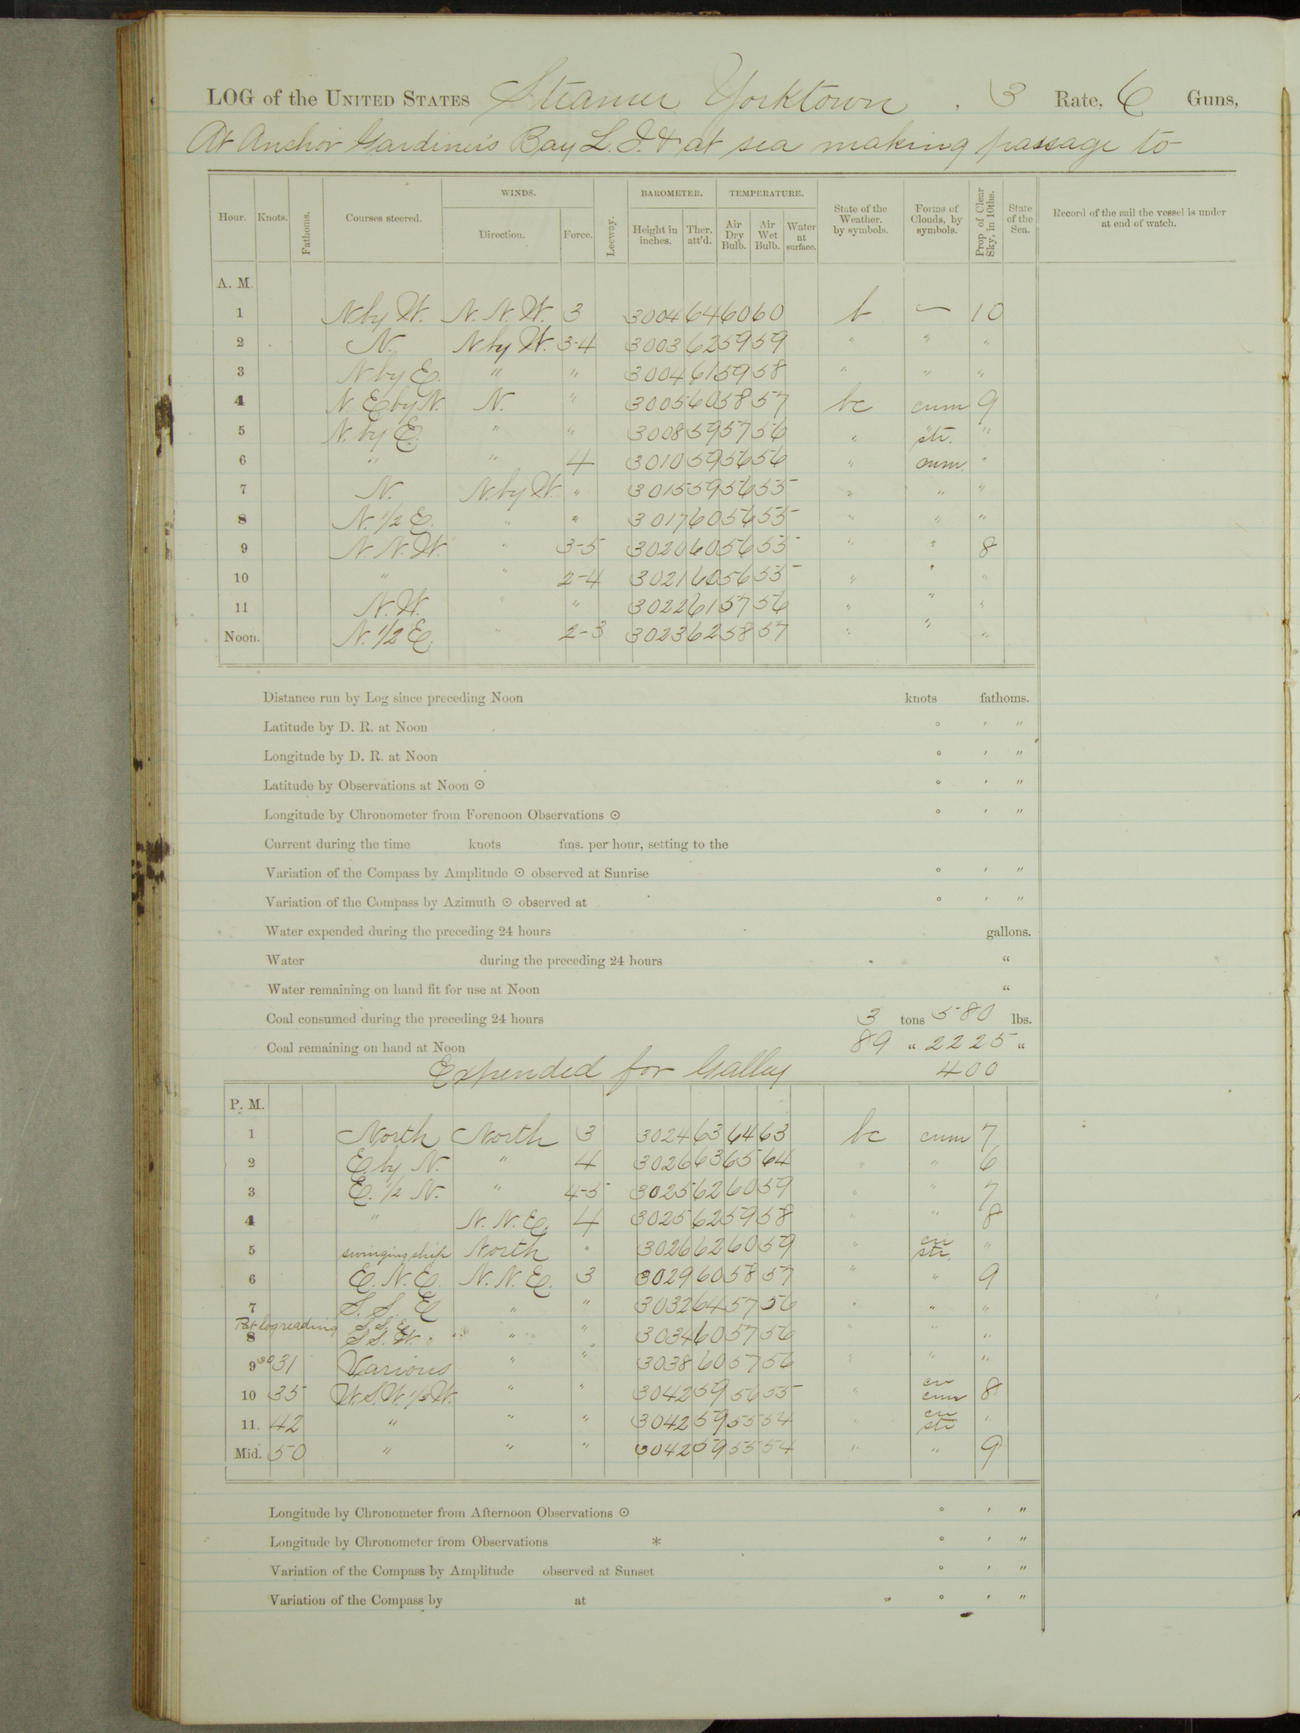 LOG of the UNITED STATES Steamer Yorktown, 3 Rate, 6 Guns,
At Anchor Gardiner's Bay L. I. & at sea making passage to
WINDS. BAROMETER. TEMPERATURE.
Hour. Knots. Fathoms. Courses steered. Direction. Force. Leeway. Height in inches. Ther. att'd. Air Dry Bulb. Air Wet Bulb. Water at surface. State of the Weather. by symbols. Forms of Clouds, by symbols. Prop of Clear Sky, in 10ths. State of the Sea. Record of the sail the vessel is under at end of watch.
A. M.
1 N by W. N. N. W. 3 3004 64 60 60 b — 10
2 N. N by W. 3-4 3003 62 59 59 " " "
3 N by E. " " 3004 61 59 58 " " "
4 N E by N. N. " 3005 60 58 57 bc cum 9
5 N. by E. " " 3008 59 57 56 " str. "
6 " " 4 3010 59 56 56 " cum. "
7 N. N. by W. " 3015 59 56 55 " " "
8 N. 1/2 E. " " 3017 60 56 55 " " "
9 N N W. " 3-5 3020 60 56 55 " " 8
10 " " 2-4 3021 60 56 55 " " "
11 N. W. " " 3022 61 57 56 " " "
Noon. N. 1/2 E. " 2-3 3023 62 58 57 " " "
Distance run by Log since preceding Noon knots fathoms.
Latitude by D. R. at Noon ° ′ ″
Longitude by D. R. at Noon ° ′ ″
Latitude by Observations at Noon ⊙ ° ′ ″
Longitude by Chronometer from Forenoon Observations ⊙ ° ′ ″
Current during the time knots fms. per hour, setting to the
Variation of the Compass by Amplitude ⊙ observed at Sunrise ° ′ ″
Variation of the Compass by Azimuth ⊙ observed at ° ′ ″
Water expended during the preceding 24 hours gallons.
Water during the preceding 24 hours "
Water remaining on hand fit for use at Noon "
Coal consumed during the preceding 24 hours 3 tons 580 lbs.
Coal remaining on hand at Noon 89 " 2225 "
Expended for Galley 400
P. M.
1 North North 3 3024 63 64 63 bc cum 7
2 E. by N. " 4 3026 63 65 64 " " 6
3 E. 1/2 N. " 4-5 3025 62 60 59 " " 7
4 " N. N. E. 4 3025 62 59 58 " " 8
5 swinging ship North " 3026 62 60 59 " cu str. "
6 E. N. E. N. N. E. 3 3029 60 58 57 " " 9
7 S. S. E " " 3032 64 57 56 " " "
Pat log reading S. S. E.
8 S S. W. " " " 3034 60 57 56 " " "
9 30 31 Various " " 3038 60 57 56 " " "
10 35 W. S. W. 1/2 W. " " 3042 59 56 55 " cu cum 8
11. 42 " " " 3042 59 55 54 " cu str "
Mid. 50 " " " 3042 59 55 54 " " 9
Longitude by Chronometer from Afternoon Observations ⊙ ° ′ ″
Longitude by Chronometer from Observations * ° ′ ″
Variation of the Compass by Amplitude observed at Sunset ° ′ ″
Variation of the Compass by at ° ′ ″